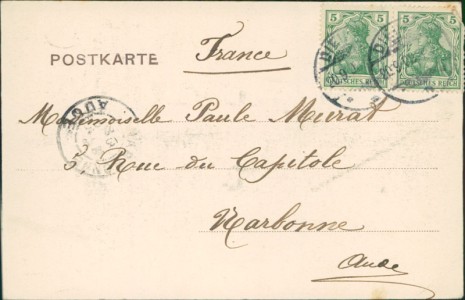 5 5
DEUTSCHES REICH DEUTSCHES REICH
POSTKARTE France
Mademoiselle Paule Murat
AUDE
5 Rue du Capitole
Narbonne
Aude